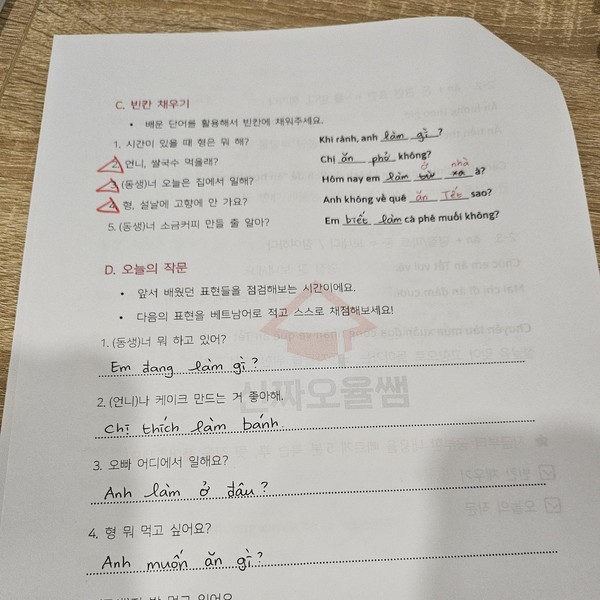 C. 빈칸 채우기
• 배운 단어를 활용해서 빈칸에 채워주세요.
1. 시간이 있을 때 형은 뭐 해? Khi rảnh, anh làm gì ?
2. 언니, 쌀국수 먹을래? Chị ăn phở không?
3. (동생)너 오늘은 집에서 일해? Hôm nay em làm ở nhà à?
4. 형, 설날에 고향에 안 가요? Anh không về quê ăn Tết sao?
5. (동생)너 소금커피 만들 줄 알아? Em biết làm cà phê muối không?
D. 오늘의 작문
• 앞서 배웠던 표현들을 점검해보는 시간이에요.
• 다음의 표현을 베트남어로 적고 스스로 채점해보세요!
1. (동생)너 뭐 하고 있어?
Em đang làm gì ?
2. (언니)나 케이크 만드는 거 좋아해.
Chị thích làm bánh
3. 오빠 어디에서 일해요?
Anh làm ở đâu ?
4. 형 뭐 먹고 싶어요?
Anh muốn ăn gì ?
신짜오율쌤